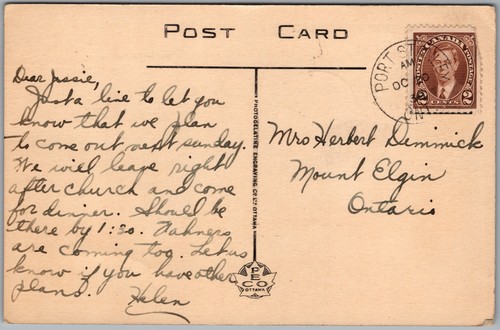 POST CARD
Dear Jessie,
Just a line to let you
know that we plan
to come out next sunday.
We will leave right
after church and come
for dinner. Should be
there by 1:30. Fahners
are coming too. Let us
know if you have other
plans.
Helen
PHOTOGELATINE ENGRAVING CO. LTD. OTTAWA
PECO
OTTAWA
PORT ST
AM
OC 20
ONT
CANADA
POSTES POSTAGE
2 CENTS 2
Mrs Herbert Dimmick
Mount Elgin
Ontario